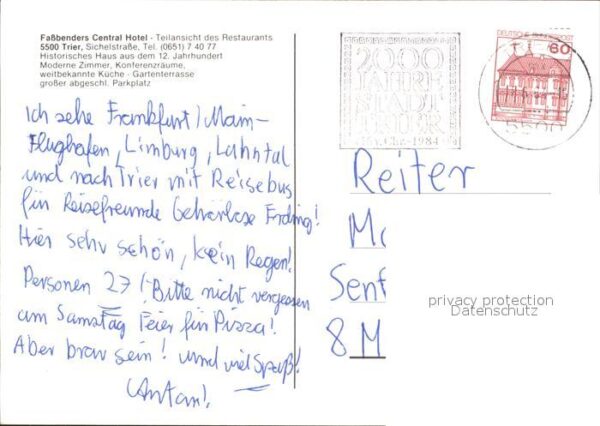 Faßbenders Central Hotel - Teilansicht des Restaurants
5500 Trier, Sichelstraße, Tel. (0651) 7 40 77
Historisches Haus aus dem 12. Jahrhundert
Moderne Zimmer, Konferenzräume,
weitbekannte Küche - Gartenterrasse
großer abgeschl. Parkplatz
Ich sehe Frankfurt/Main-
Flughafen, Limburg, Lahntal
und nach Trier mit Reisebus
für Reisefreunde Gehörlose Erding!
Hier sehr schön, kein Regen!
Personen 27! Bitte nicht vergessen
am Samstag Feier für Pizza!
Aber brav sein! und viel Spaß!
Anton!
2000
JAHRE
STADT
TRIER
v. Chr. - 1984
DEUTSCHE BUNDESPOST
60
5500
Reiter
M
Senf
8 M
privacy protection
Datenschutz